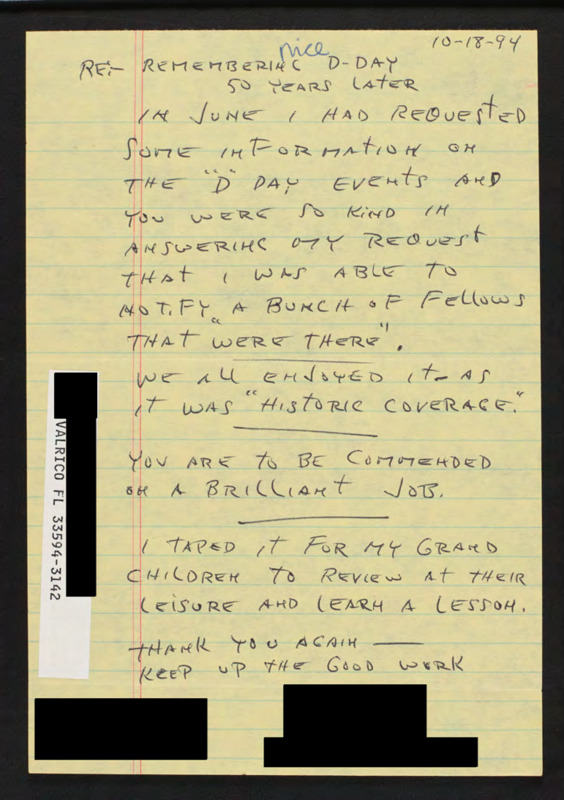 10-18-94
nice
RE:- REMEMBERING D-DAY
50 YEARS LATER
IN JUNE I HAD REQUESTED
SOME INFORMATION ON
THE "D" DAY EVENTS AND
YOU WERE SO KIND IN
ANSWERING MY REQUEST
THAT I WAS ABLE TO
NOTIFY A BUNCH OF FELLOWS
"THAT WERE THERE".
WE ALL ENJOYED IT - AS
IT WAS "HISTORIC COVERAGE."
YOU ARE TO BE COMMENDED
ON A BRILLIANT JOB.
I TAPED IT FOR MY GRAND
CHILDREN TO REVIEW AT THEIR
LEISURE AND LEARN A LESSON.
THANK YOU AGAIN —
KEEP UP THE GOOD WORK
VALRICO FL 33594-3142